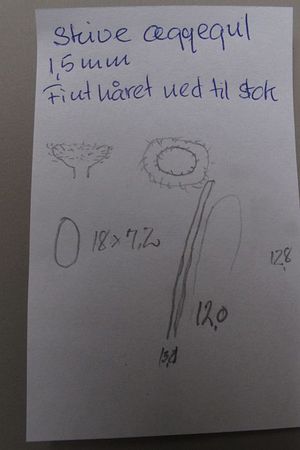 Skive æggegul
1,5 mm
Fint håret ned til stok
18 x 7,20
12,8
12,0